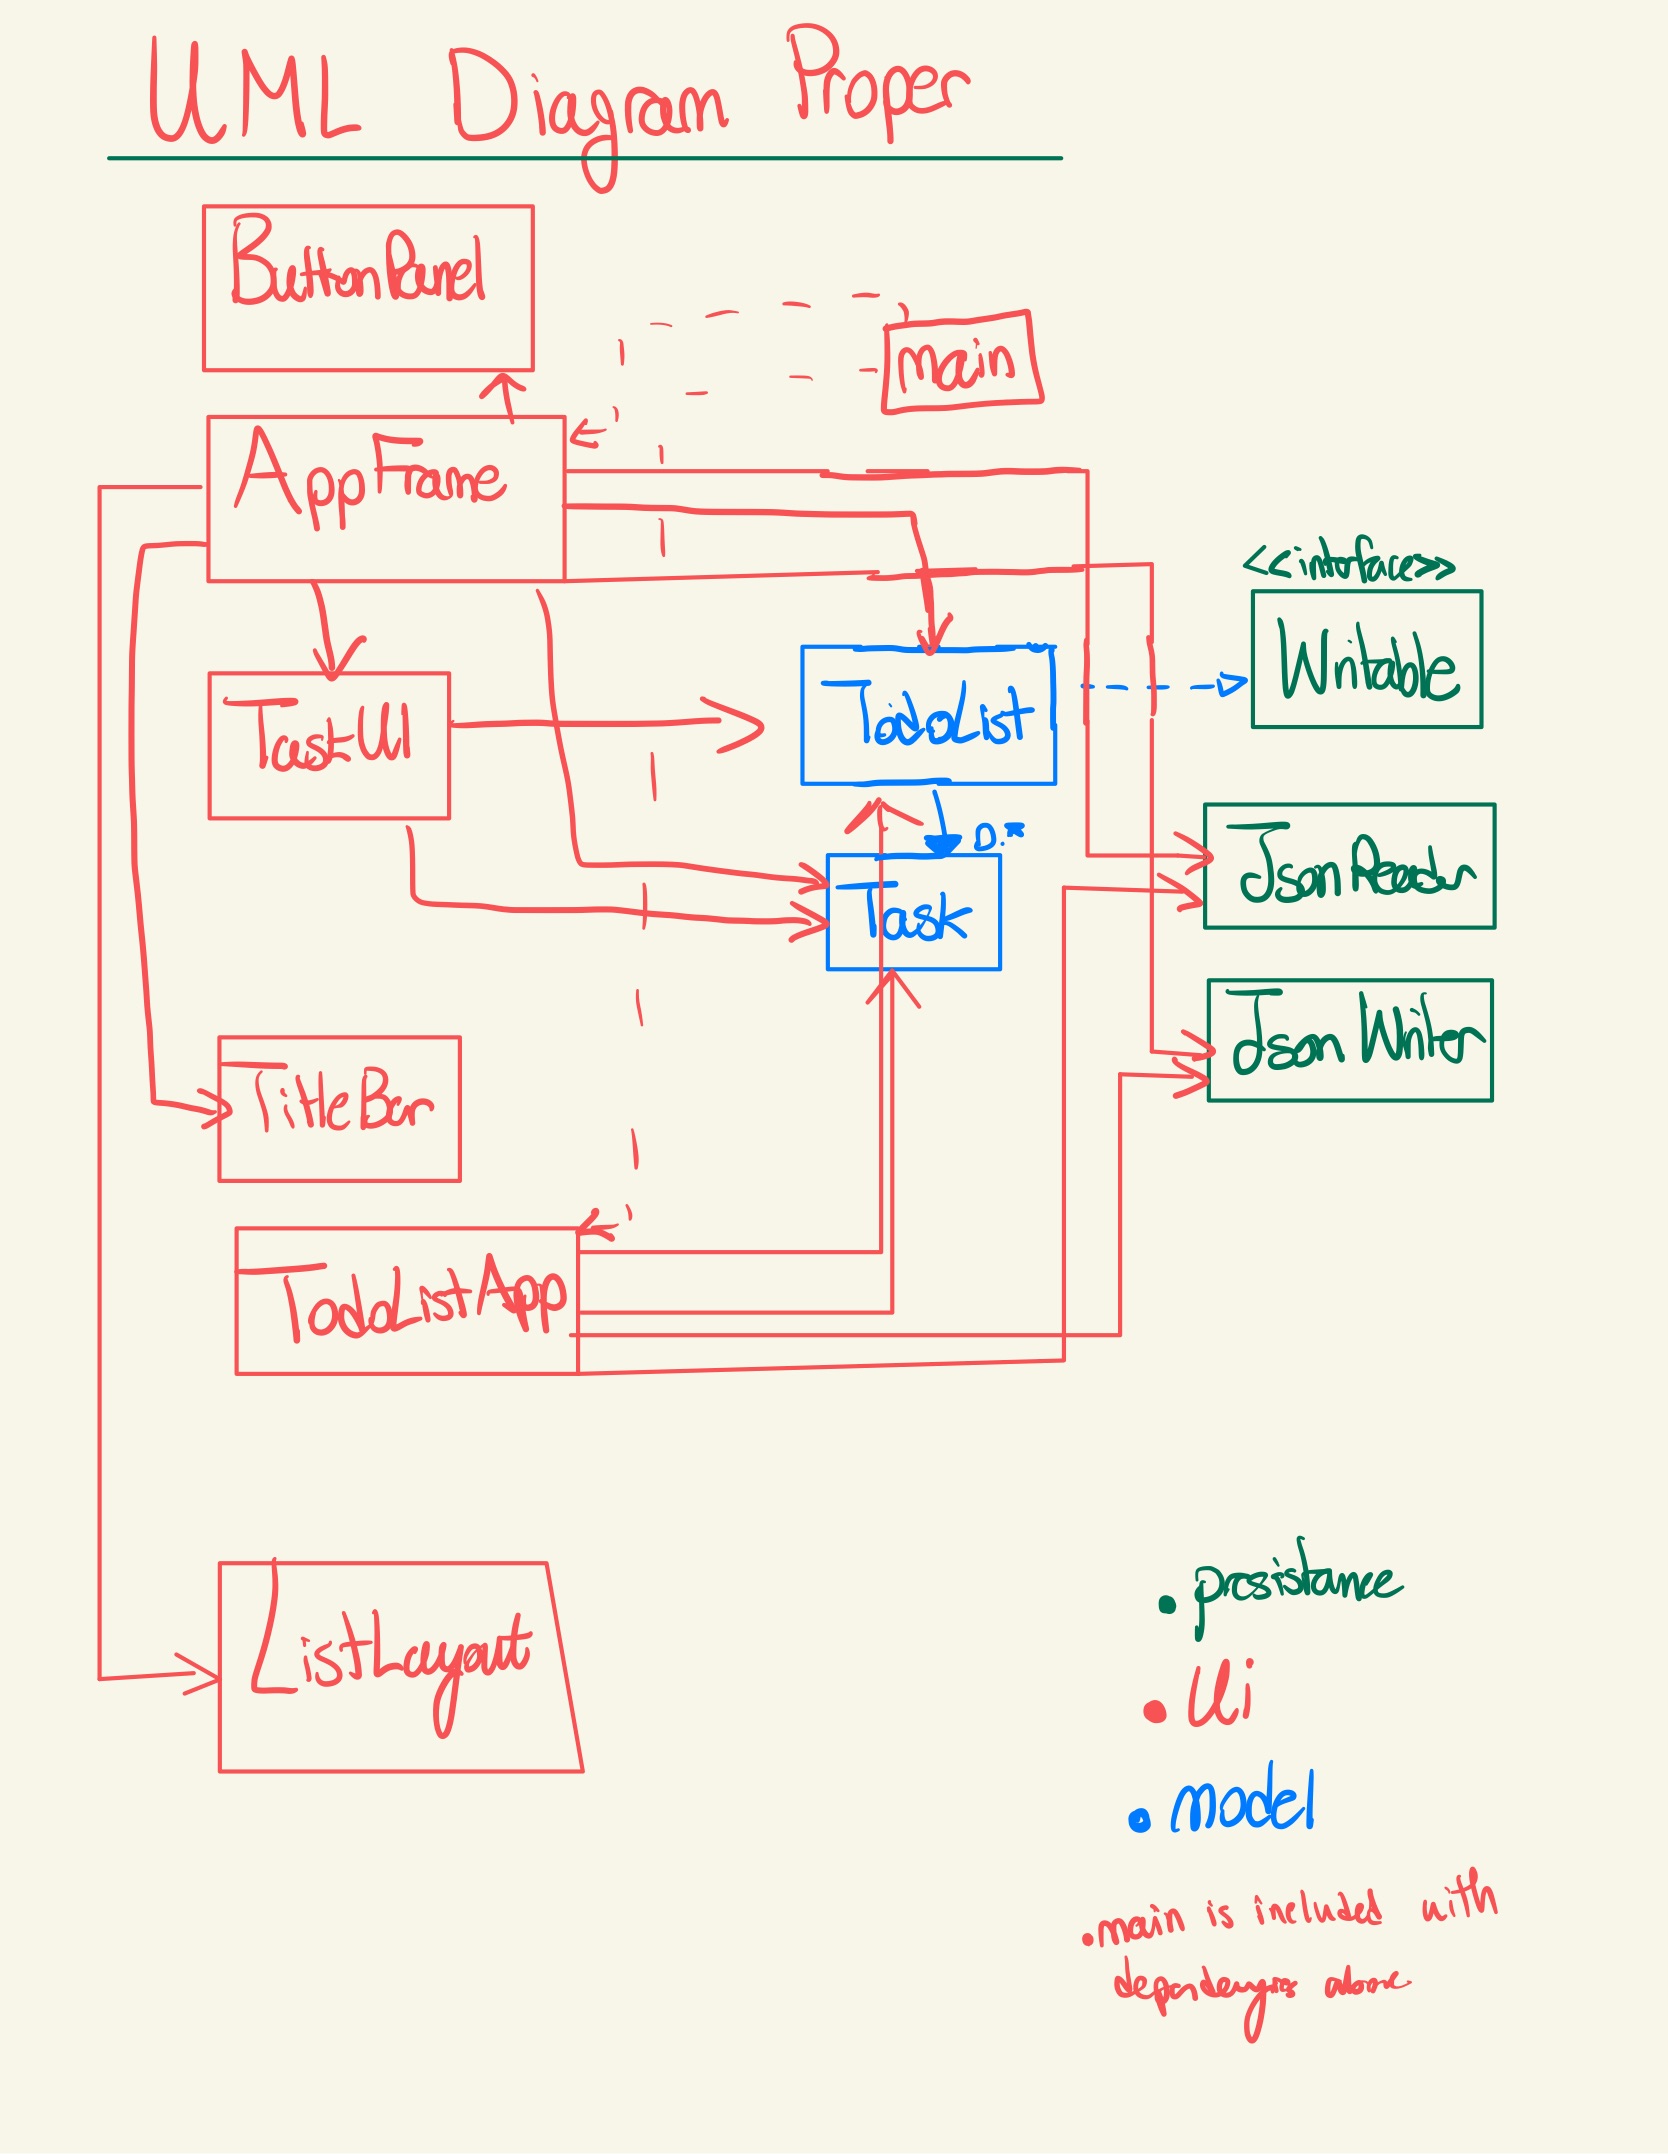 UML Diagram Proper
ButtonPanel
main
AppFrame
<<interface>>
Writable
TaskUI
TodoList
0..*
JsonReader
Task
JsonWriter
TitleBar
TodoListApp
ListLayout
• persistance
• Ui
• model
• main is included with